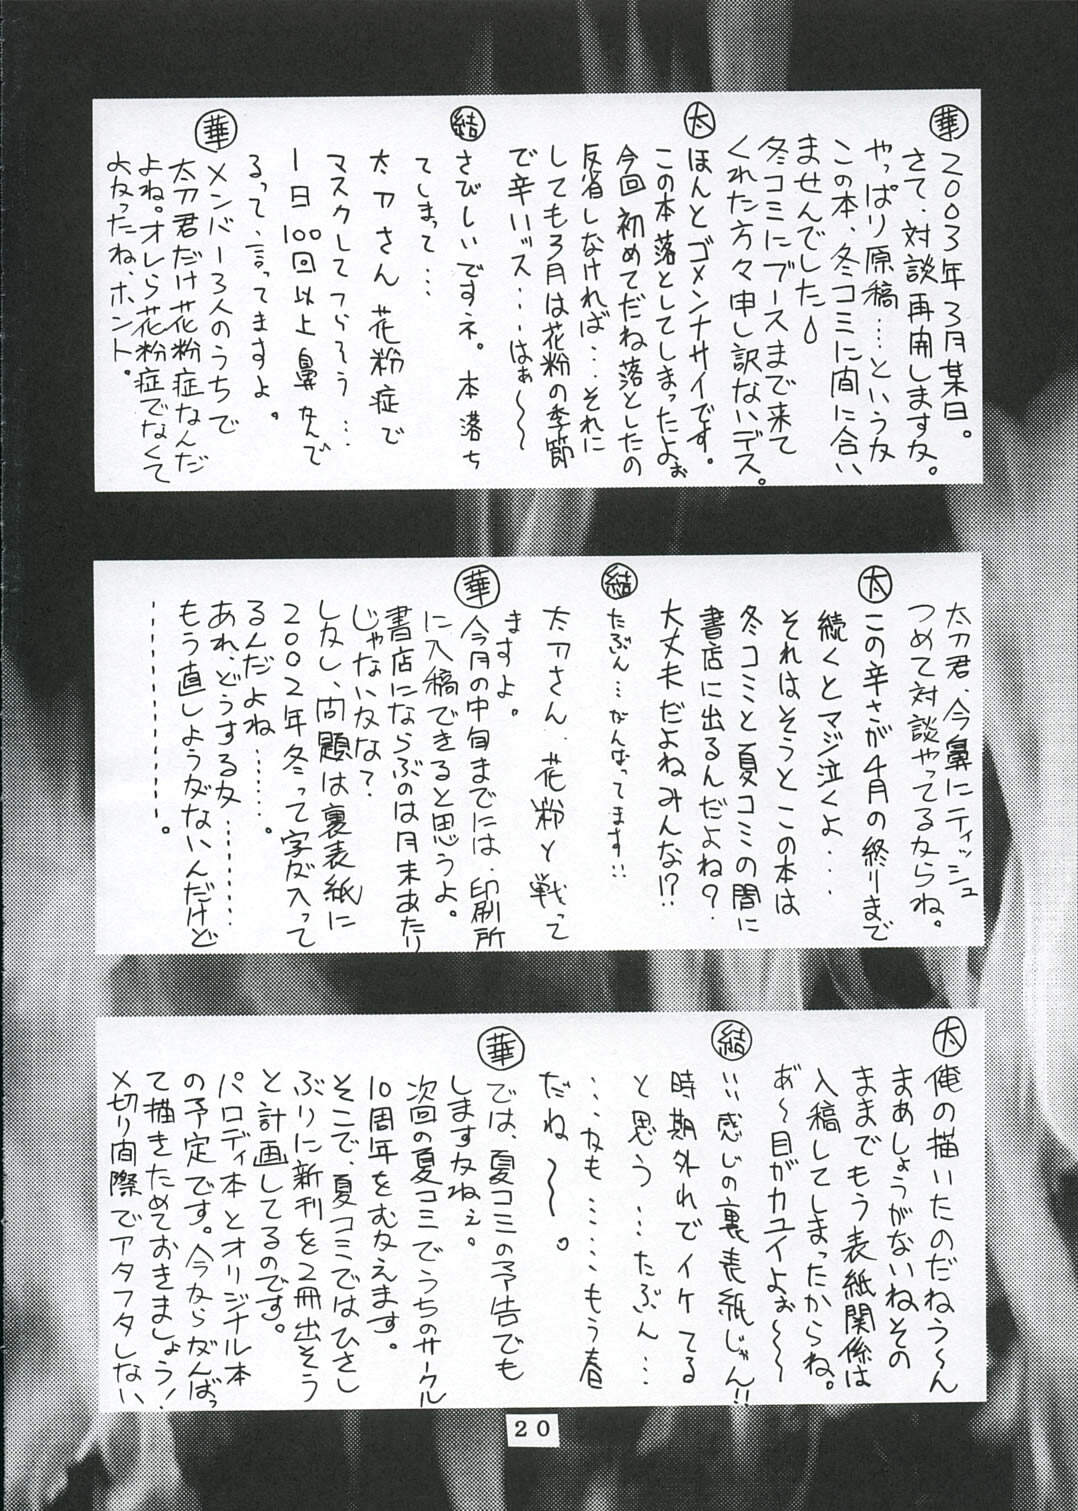 華 2003年3月某日。
さて、対談再開しますな。
やっぱり原稿…というな
この本、冬コミに間に合い
ませんでした
冬コミにブースまで来て
くれた方々申し訳ないデス。
太 ほんとゴメンナサイです。
この本落としてしまったよぉ
今回初めてだね落としたの
反省しなければ…それに
しても3月は花粉の季節
で辛いッス…はぁ〜〜
結 さびしいですネ。本落ち
てしまって…
太刀さん 花粉症で
マスクしてつらそう…
1日100回以上鼻かんで
るって、言ってますよ。
華 メンバー3人のうちで
太刀君だけ花粉症なんだ
よね。オレら花粉症でなくて
よかったね、ホント。
太刀君、今鼻にティッシュ
つめて対談やってるからね。
太 この辛さが4月の終りまで
続くとマジ泣くよ...
それはそうとこの本は
冬コミと夏コミの間に
書店に出るんだよね?
大丈夫だよねみんな!?
結 たぶん…がんばってます!!
太刀さん、花粉と戦って
ますよ。
華 今月の中旬までには、印刷所
に入稿できると思うよ。
書店にならぶのは月末あたり
じゃないかな?
しかし、問題は裏表紙に
2002年冬って字が入って
るんだよね……。
あれ、どうするな…………
もう直しようがないんだけど
……………。
太 俺の描いたのだねう〜ん
まあしょうがないねその
ままでもう表紙関係は
入稿してしまったからね。
あ゛〜目がカユイよぉ〜〜
結 いい感じの裏表紙じゃん!!
時期外れでイケてる
と思う…たぶん…
…かも……もう春
だね〜〜。
華 では、夏コミの予告でも
しますかねぇ。
次回の夏コミでうちのサークル
10周年をむかえます。
そこで、夏コミではひさし
ぶりに新刊を2冊出そう
と計画してるのです。
パロディ本とオリジナル本
の予定です。今からがんばっ
て描きためておきましょう!
〆切り間際でアタフタしない
20